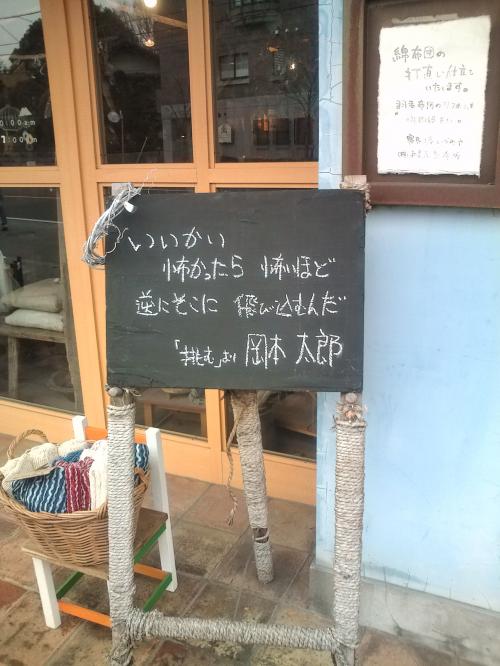 いいかい
怖かったら 怖いほど
逆にそこに 飛び込むんだ
「挑む」より 岡本 太郎
綿布団の
打直し仕立て
いたします。